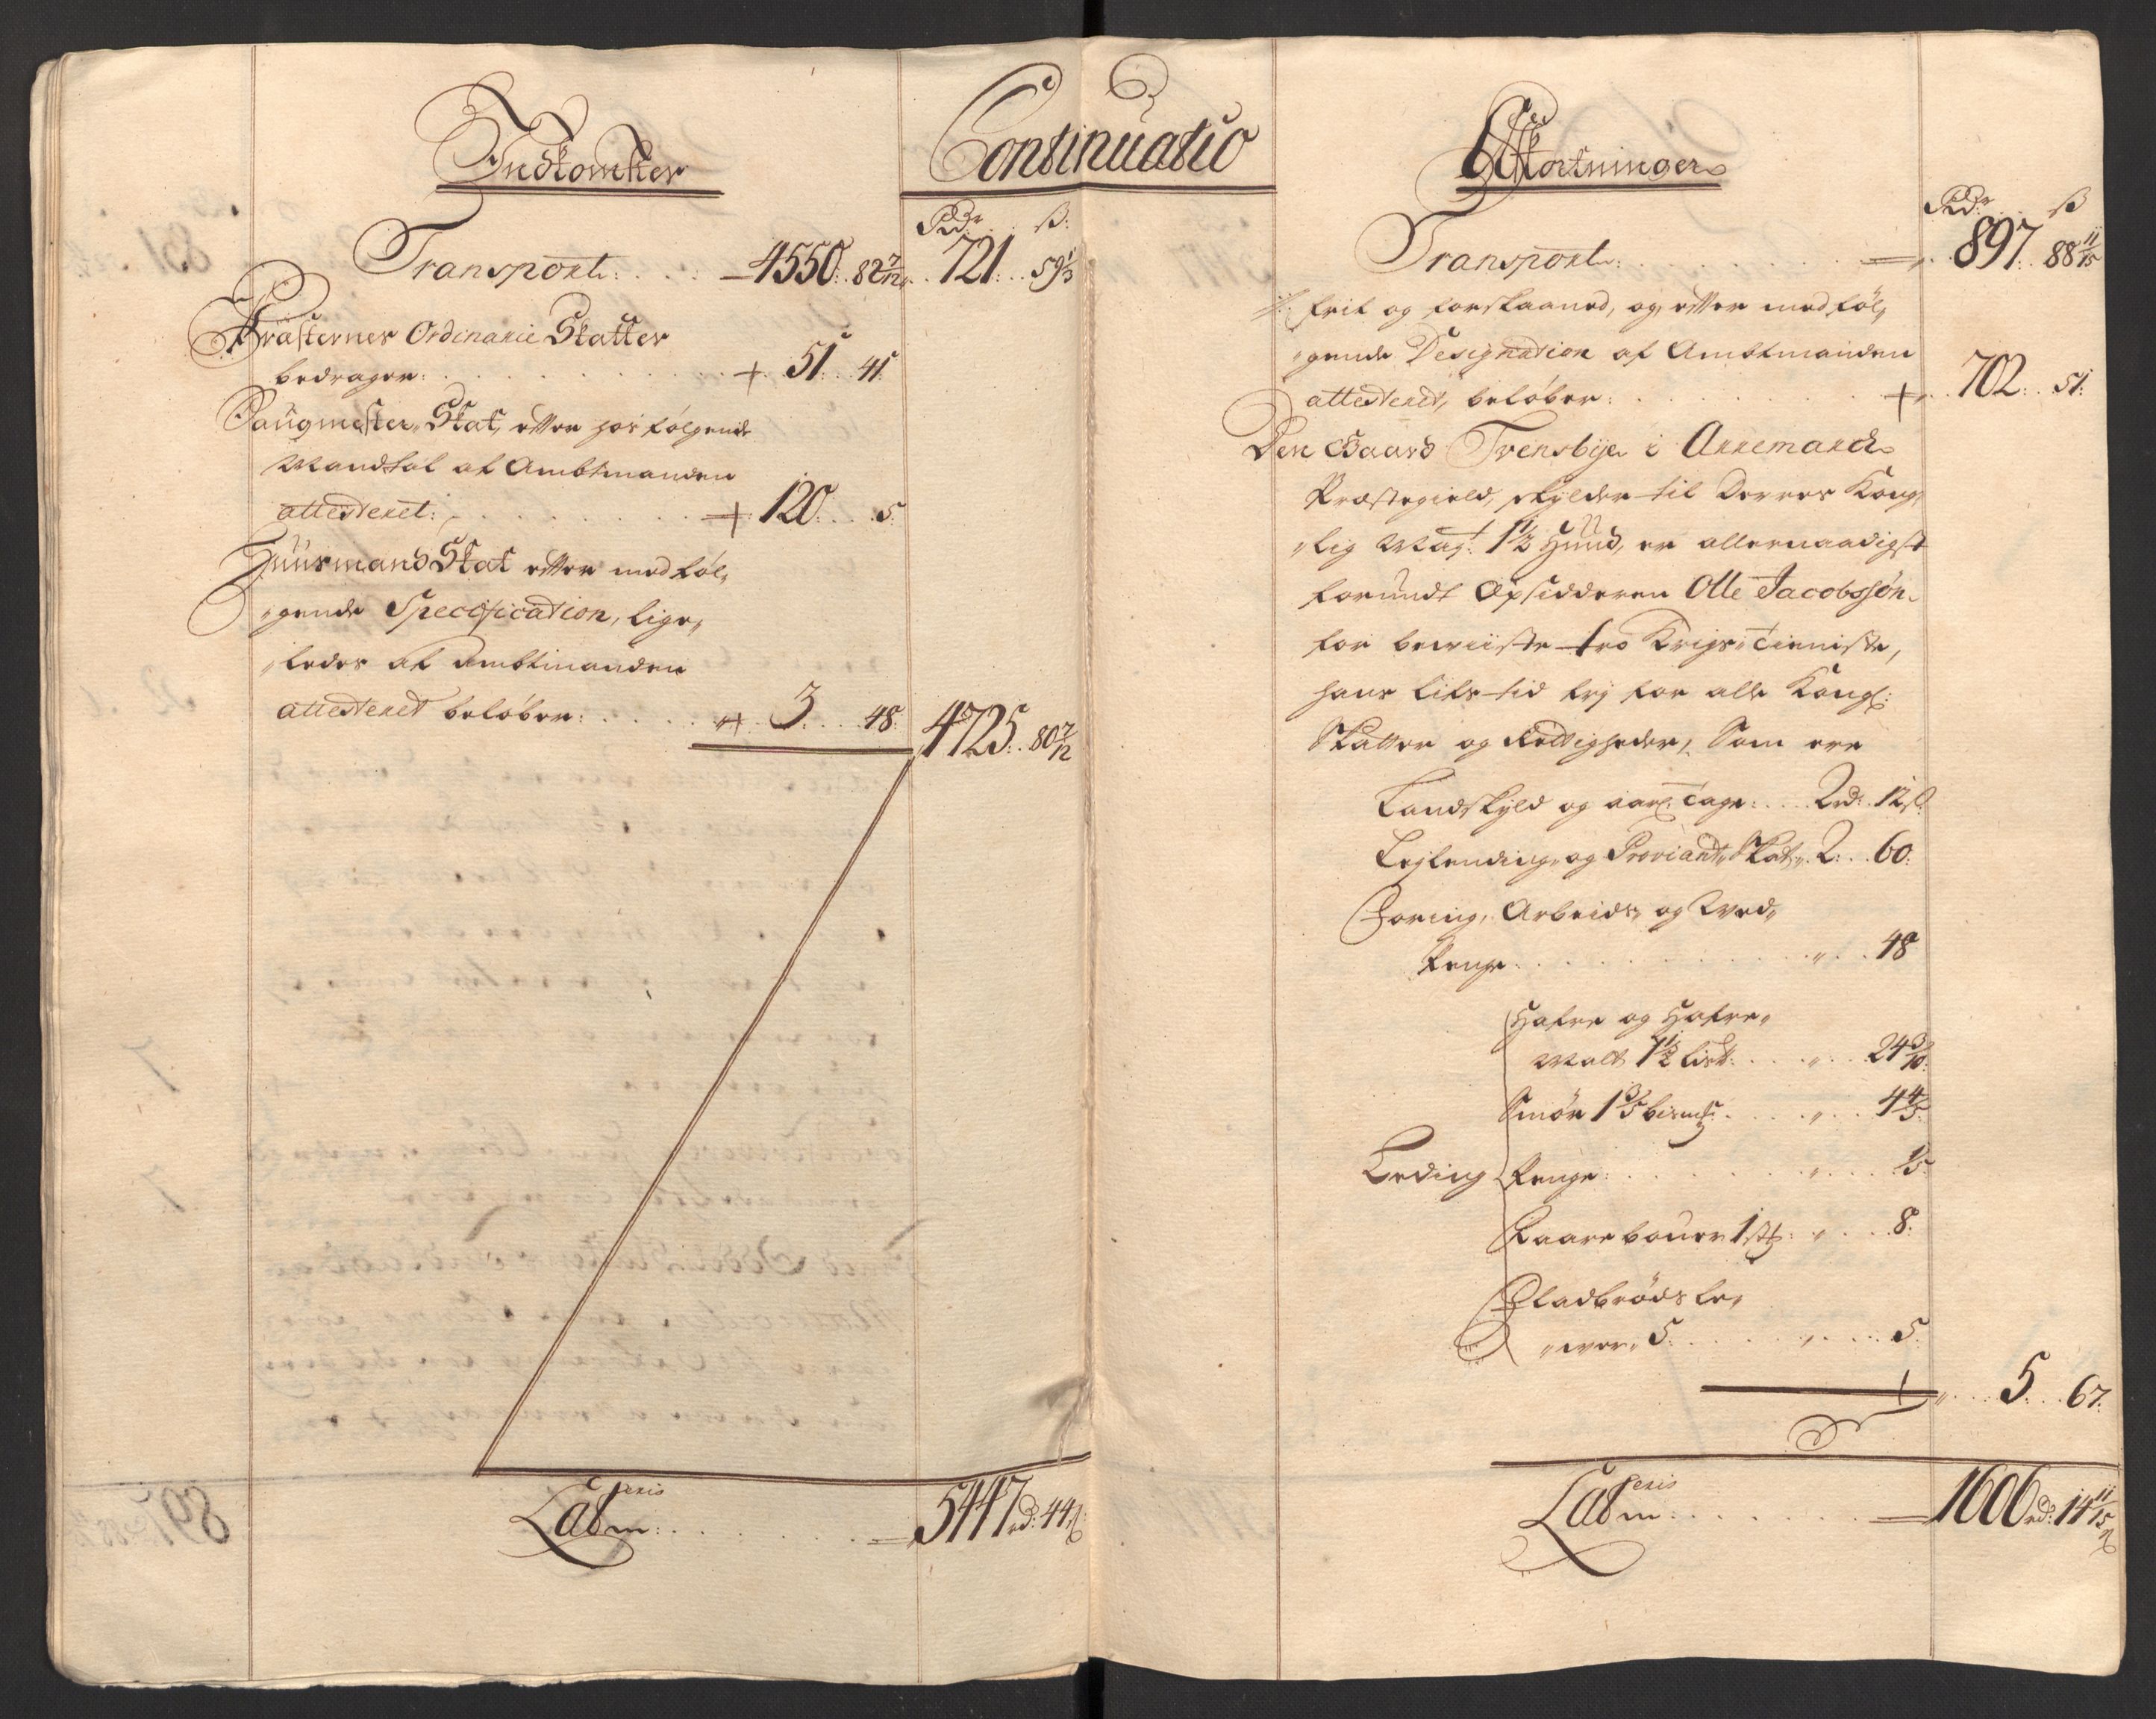 Continuatio
Indkomster
Rdr ß:
Transport: 4550: 82 7/12 721: 59 1/3
Præsternes Ordinarie Skatter
bedrager: 51: 41
Saugmester Skat, efter hos følgende
Mandtal af Ambtmanden
attesteret: 120: 5:
Huusmand Skat efter medføl„
„gende Specification, lige„
„ledes af Ambtmanden
attesteret beløber: 3: 48: 4725: 80 7/12
Lat.m eris: 5447 rd: 44 ß
Afkortninger
Rdr ß
Transport: 897: 88 11/15
frit og forskaaned, og efter medføl„
„gende Designation af Ambtmanden
attesteret, beløber: 702: 51:
Den Gaard Trensbye i Annemarck
Præstegield, skylder til Deres Kong„
„lig May: 1 1/2 Hund, er allernaadigst
forundt Opsidderen Olle Jacobssøn
for beviiste tro Krigs„Tieniste,
hans lifs tid frj for alle Kongl:
Skatter og Rettigheder, Som ere
Landskyld og aarl: Tage: 2 rd: 12 ß
Leylending„ og Proviant„Skat„ 2: 60:
Foring, Arbeids„ og Ved„
Penge 48
Hafre og Hafre„
Malt 1 1/2 Lispd: 24 3/10:
Smør 1 3/5 bismt: 4 4/5:
Leding Penge: 1/5
Faarebouer 1 stk: 8:
Fladbrøds Le„
„ver„ 5: 5
5: 67:
Lat.m eris: 1606 rd: 14 11/15 ß